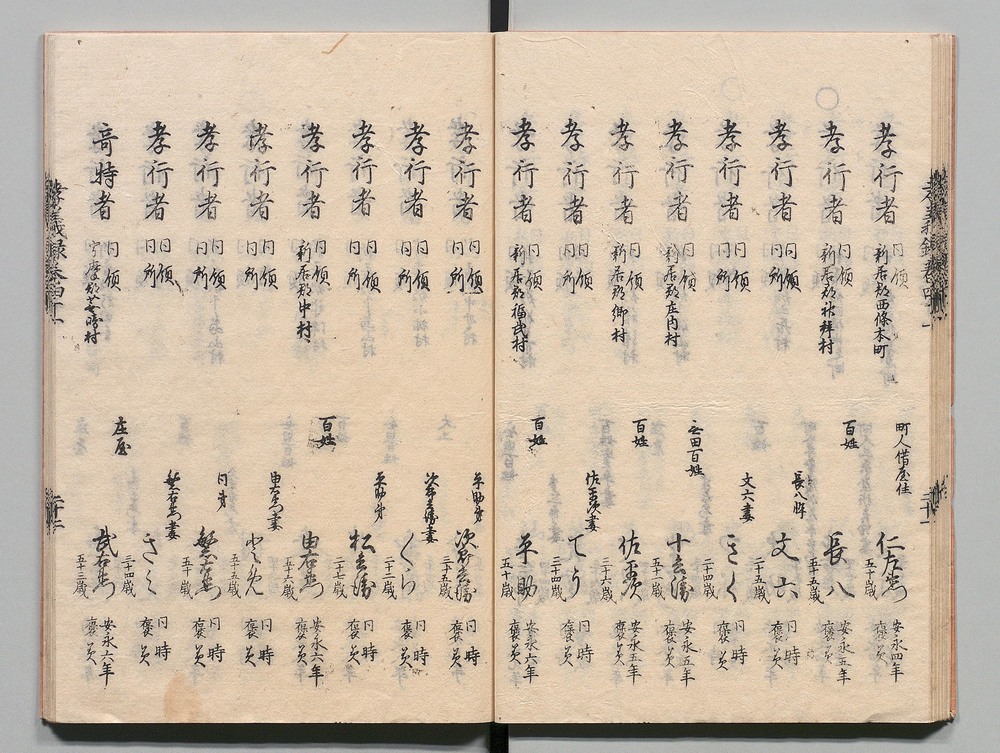 孝行者 同領 新居郡西條本町 町人借屋住 仁左衛門 安永四年 褒美
孝行者 同領 新居郡 村 百姓 長八 五十五歳 安永五年 褒美
孝行者 同領 同所 長八 文六 二十五歳 同時 褒美
孝行者 同領 同所 文六妻 きく 二十四歳 同時 褒美
孝行者 同領 新居郡庄内村 無田百姓 十兵衛 安永五年 褒美
孝行者 同領 新居郡郷村 百姓 佐五次 二十六歳 安永五年 褒美
孝行者 同領 同所 佐五次妻 てう 二十歳 同時 褒美
孝行者 同領 新居郡福武村 百姓 平助 五十歳 安永六年 褒美
孝行者 同領 同所 平助弟 次郎兵衛 三十五歳 同時 褒美
孝行者 同領 同所 次郎兵衛妻 くら 二十二歳 同時 褒美
孝行者 同領 同所 平助弟 松兵衛 二十七歳 同時 褒美
孝行者 同領 新居郡中村 百姓 由右衛門 五十六歳 安永六年 褒美
孝行者 同領 同所 由右衛門妻 五十五歳 同時 褒美
孝行者 同領 同所 同弟 五十歳 同時 褒美
孝行者 同領 同所 右衛門妻 三十四歳 同時 褒美
奇特者 同領 宇摩郡 村 庄屋 武右衛門 五十三歳 安永六年 褒美
孝義録巻四十一
二十二